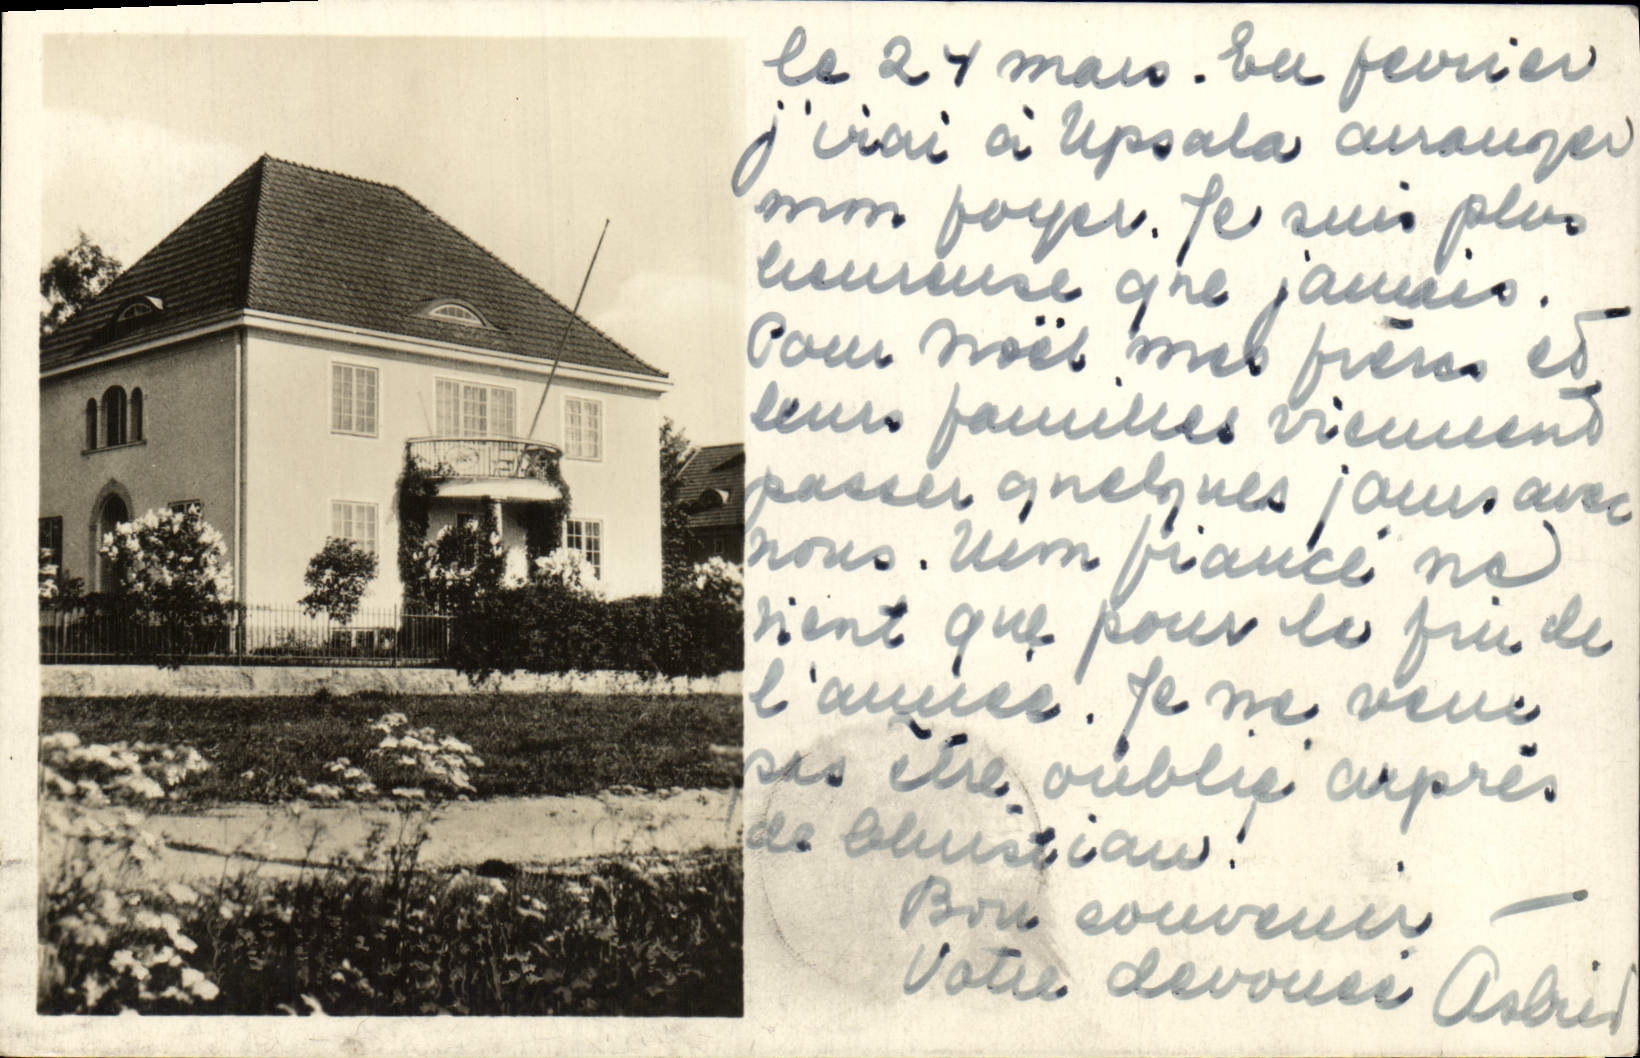 le 24 mars. En fevrier
j'irai à Upsala arranger
mon foyer. Je suis plus
heureuse que jamais.
Pour Noël mes frères et
leurs familles viennent
passer quelques jours avec
nous. Mon fiancé ne
vient que pour la fin de
l'année. Je ne veux
pas être oublié auprès
de Christian.
Bon souvenir —
Votre devouée Astrid